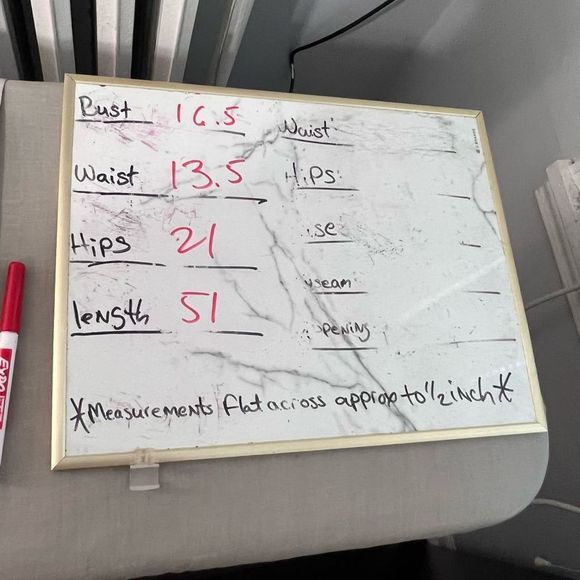 Bust 16.5
Waist 13.5
Hips 21
length 51
Waist:
Hips:
ise
nseam
opening
*Measurements flat across approp to 1/2 inch*
EXPO